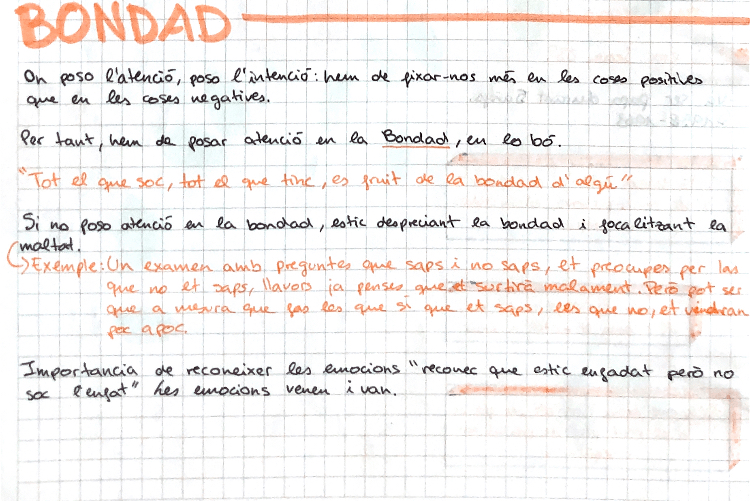 BONDAD
On poso l'atenció, poso l'intenció: hem de fixar-nos més en les coses positives
que en les coses negatives.
Per tant, hem de posar atenció en la Bondad, en lo bó.
"Tot el que soc, tot el que tinc, es fruit de la bondad d'algú"
Si no poso atenció en la bondad, estic despreciant la bondad i focalitzant la
maltat.
Exemple: Un examen amb preguntes que saps i no saps, et preocupes per las
que no et saps, llavors ja penses que et surtirà malament. Però pot ser
que a mesura que fas les que si que et saps, les que no, et vendran
poc apoc.
Importancia de reconeixer les emocions "reconec que estic enfadat però no
soc l'enfat" les emocions venen i van.